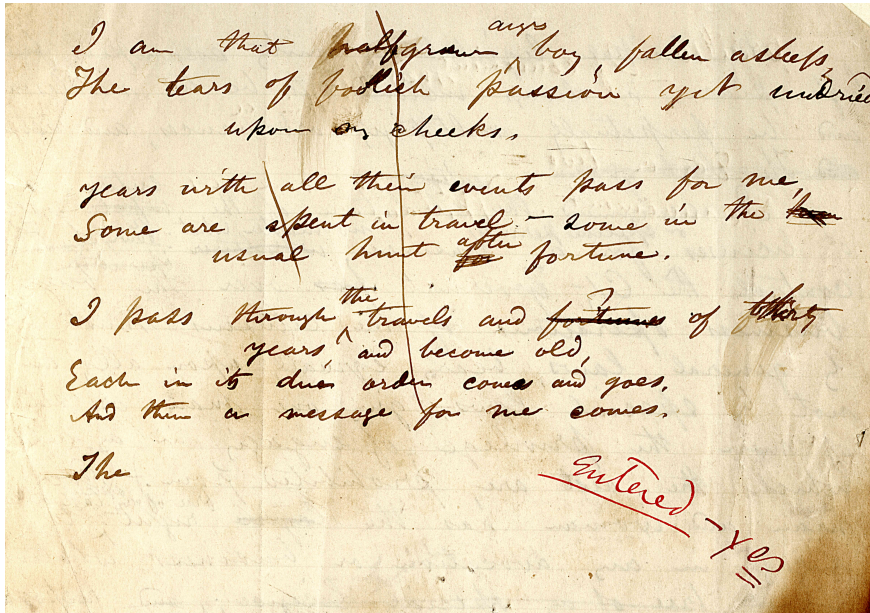 angry
I am that halfgrown boy, fallen asleep,
The tears of foolish passion yet undried
upon my cheeks.
years with all their events pass for me,
Some are spent in travel – some in the
usual hunt for after fortune.
I pass through the travels and fortunes ? of thirty
years, and become old,
Each in its due order comes and goes,
And then a message for me comes.
The
Entered – Yes